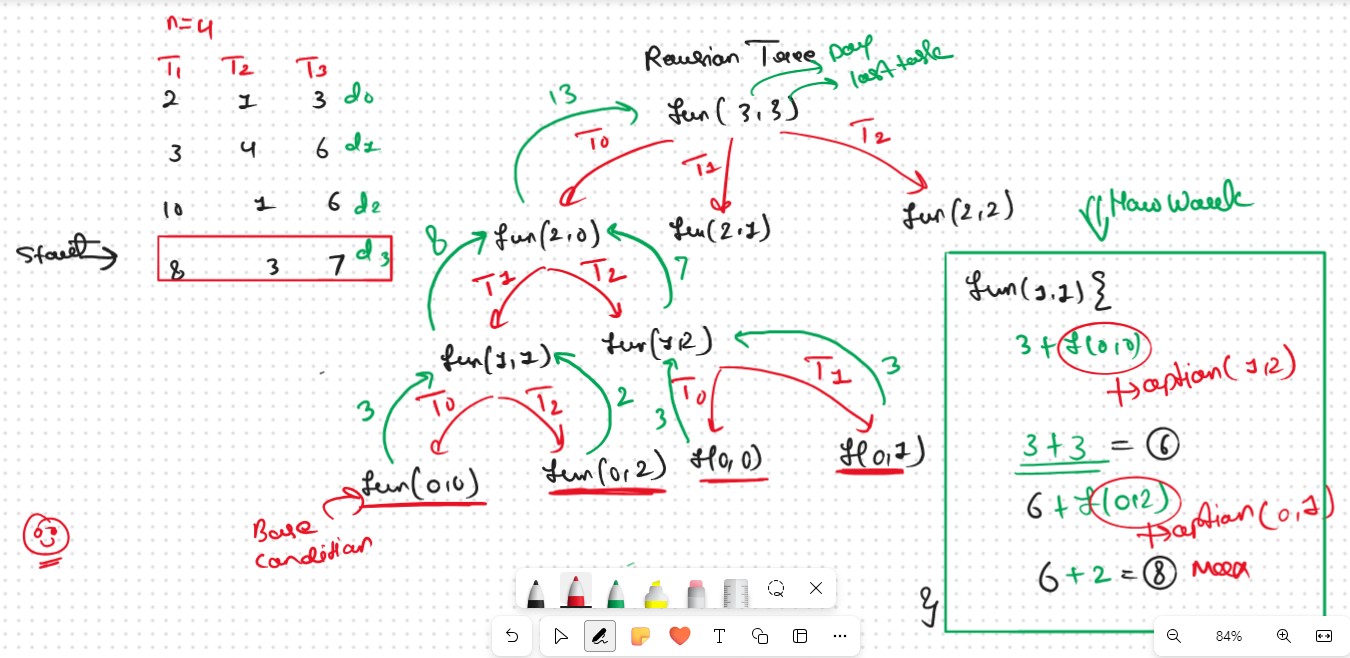 n=4
T1 T2 T3
2 1 3 d0
3 4 6 d1
10 1 6 d2
Start
8 3 7 d3
Recursion Tree
Day
last task
fun(3,3)
13
T0 T1 T2
fun(2,0) fun(2,1) fun(2,2)
8 T1 T2 7
fun(1,1) fun(1,2)
3 T0 T2 2 3 T0 T1 3
fun(0,0) fun(0,2) f(0,0) f(0,1)
Base
condition
How Work
fun(1,1){
3+f(0,0)
option(1,2)
3+3 = 6
6+f(0,2)
option(0,1)
6+2=8 max
}
T
84%